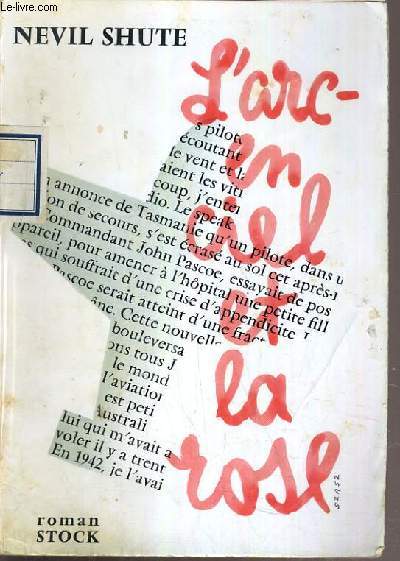 Le-livre.com
NEVIL SHUTE
L'arc-
en
ciel
et
la
rose
s pilot
écoutant
le vent et l
aient les vit
coup, j'enter
dio. Le speak
annonce de Tasmanie qu'un pilote, dans u
on de secours, s'est écrasé au sol cet après-
commandant John Pascoe, essayait de pos
ppareil, pour amener à l'hôpital une petite fill
qui souffrait d'une crise d'appendicite
ascoe serait atteint d'une fract
âne. Cette nouvelle
bouleversa
ons tous J
le mond
l'aviation
est peti
Australi
lui qui m'avait a
voler il y a trent
En 1942, je l'avai
roman
STOCK